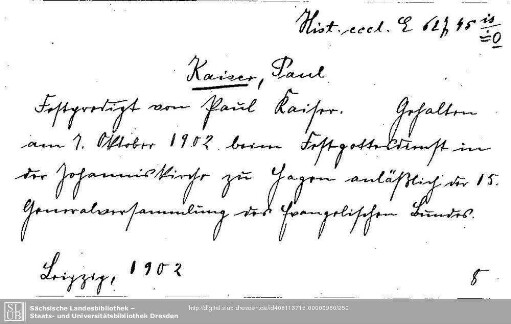 Hist. eccl. E
Kaiser, Paul
Festpredigt von Paul Kaiser. Gehalten
am 7. Oktober 1902 beim Festgottesdienst in
der Johanniskirche zu Hagen anläßlich der 15.
Generalversammlung des Evangelischen Bundes.
Leipzig, 1902
8
Sächsische Landesbibliothek –
Staats- und Universitätsbibliothek Dresden